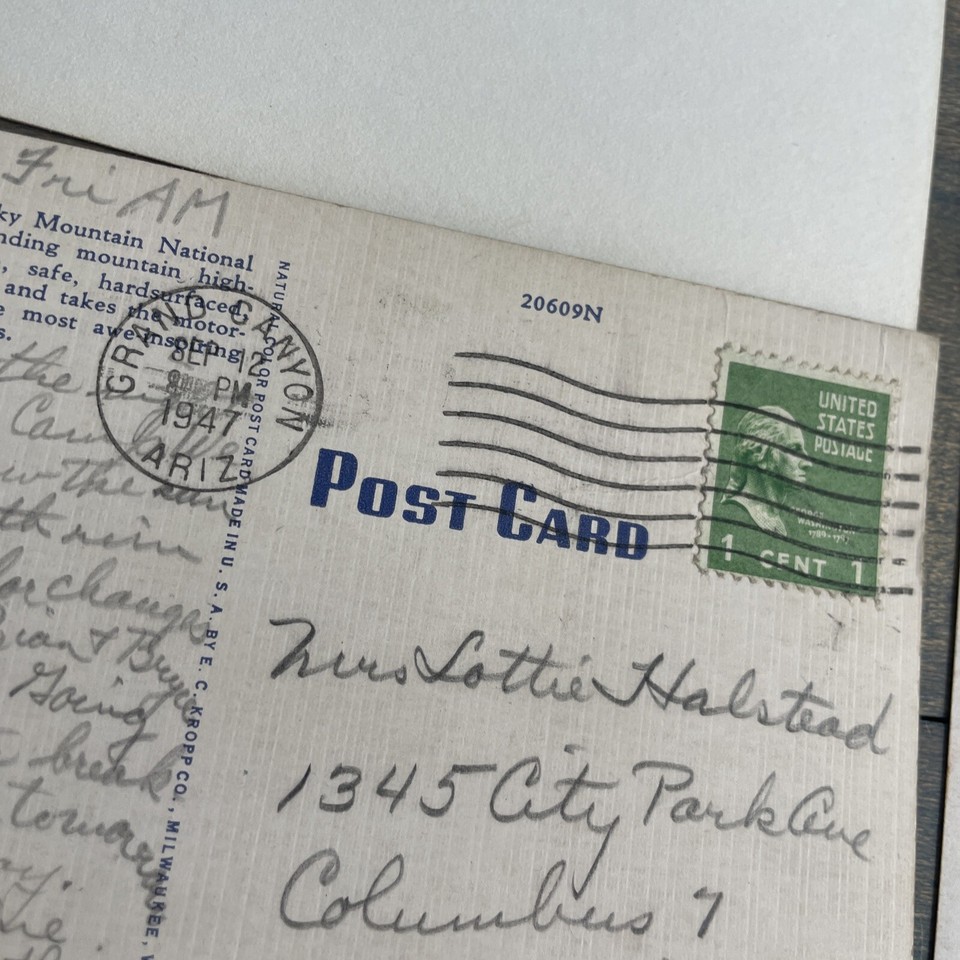 Fri AM
ky Mountain National
nding mountain high-
, safe, hardsurfaced,
and takes the motor-
e most awe-inspiring
s.
the
the sun
th rim
for changes
Going
break
tomorrow
NATURAL COLOR POST CARD MADE IN U. S. A. BY E. C. KROPP CO., MILWAUKEE, W
GRAND CANYON
SEP 12
PM
1947
ARIZ.
20609N
POST CARD
UNITED
STATES
POSTAGE
GEORGE
WASHINGTON
1789-1797
1 CENT 1
Mrs Lottie Halstead
1345 City Park Ave
Columbus 7